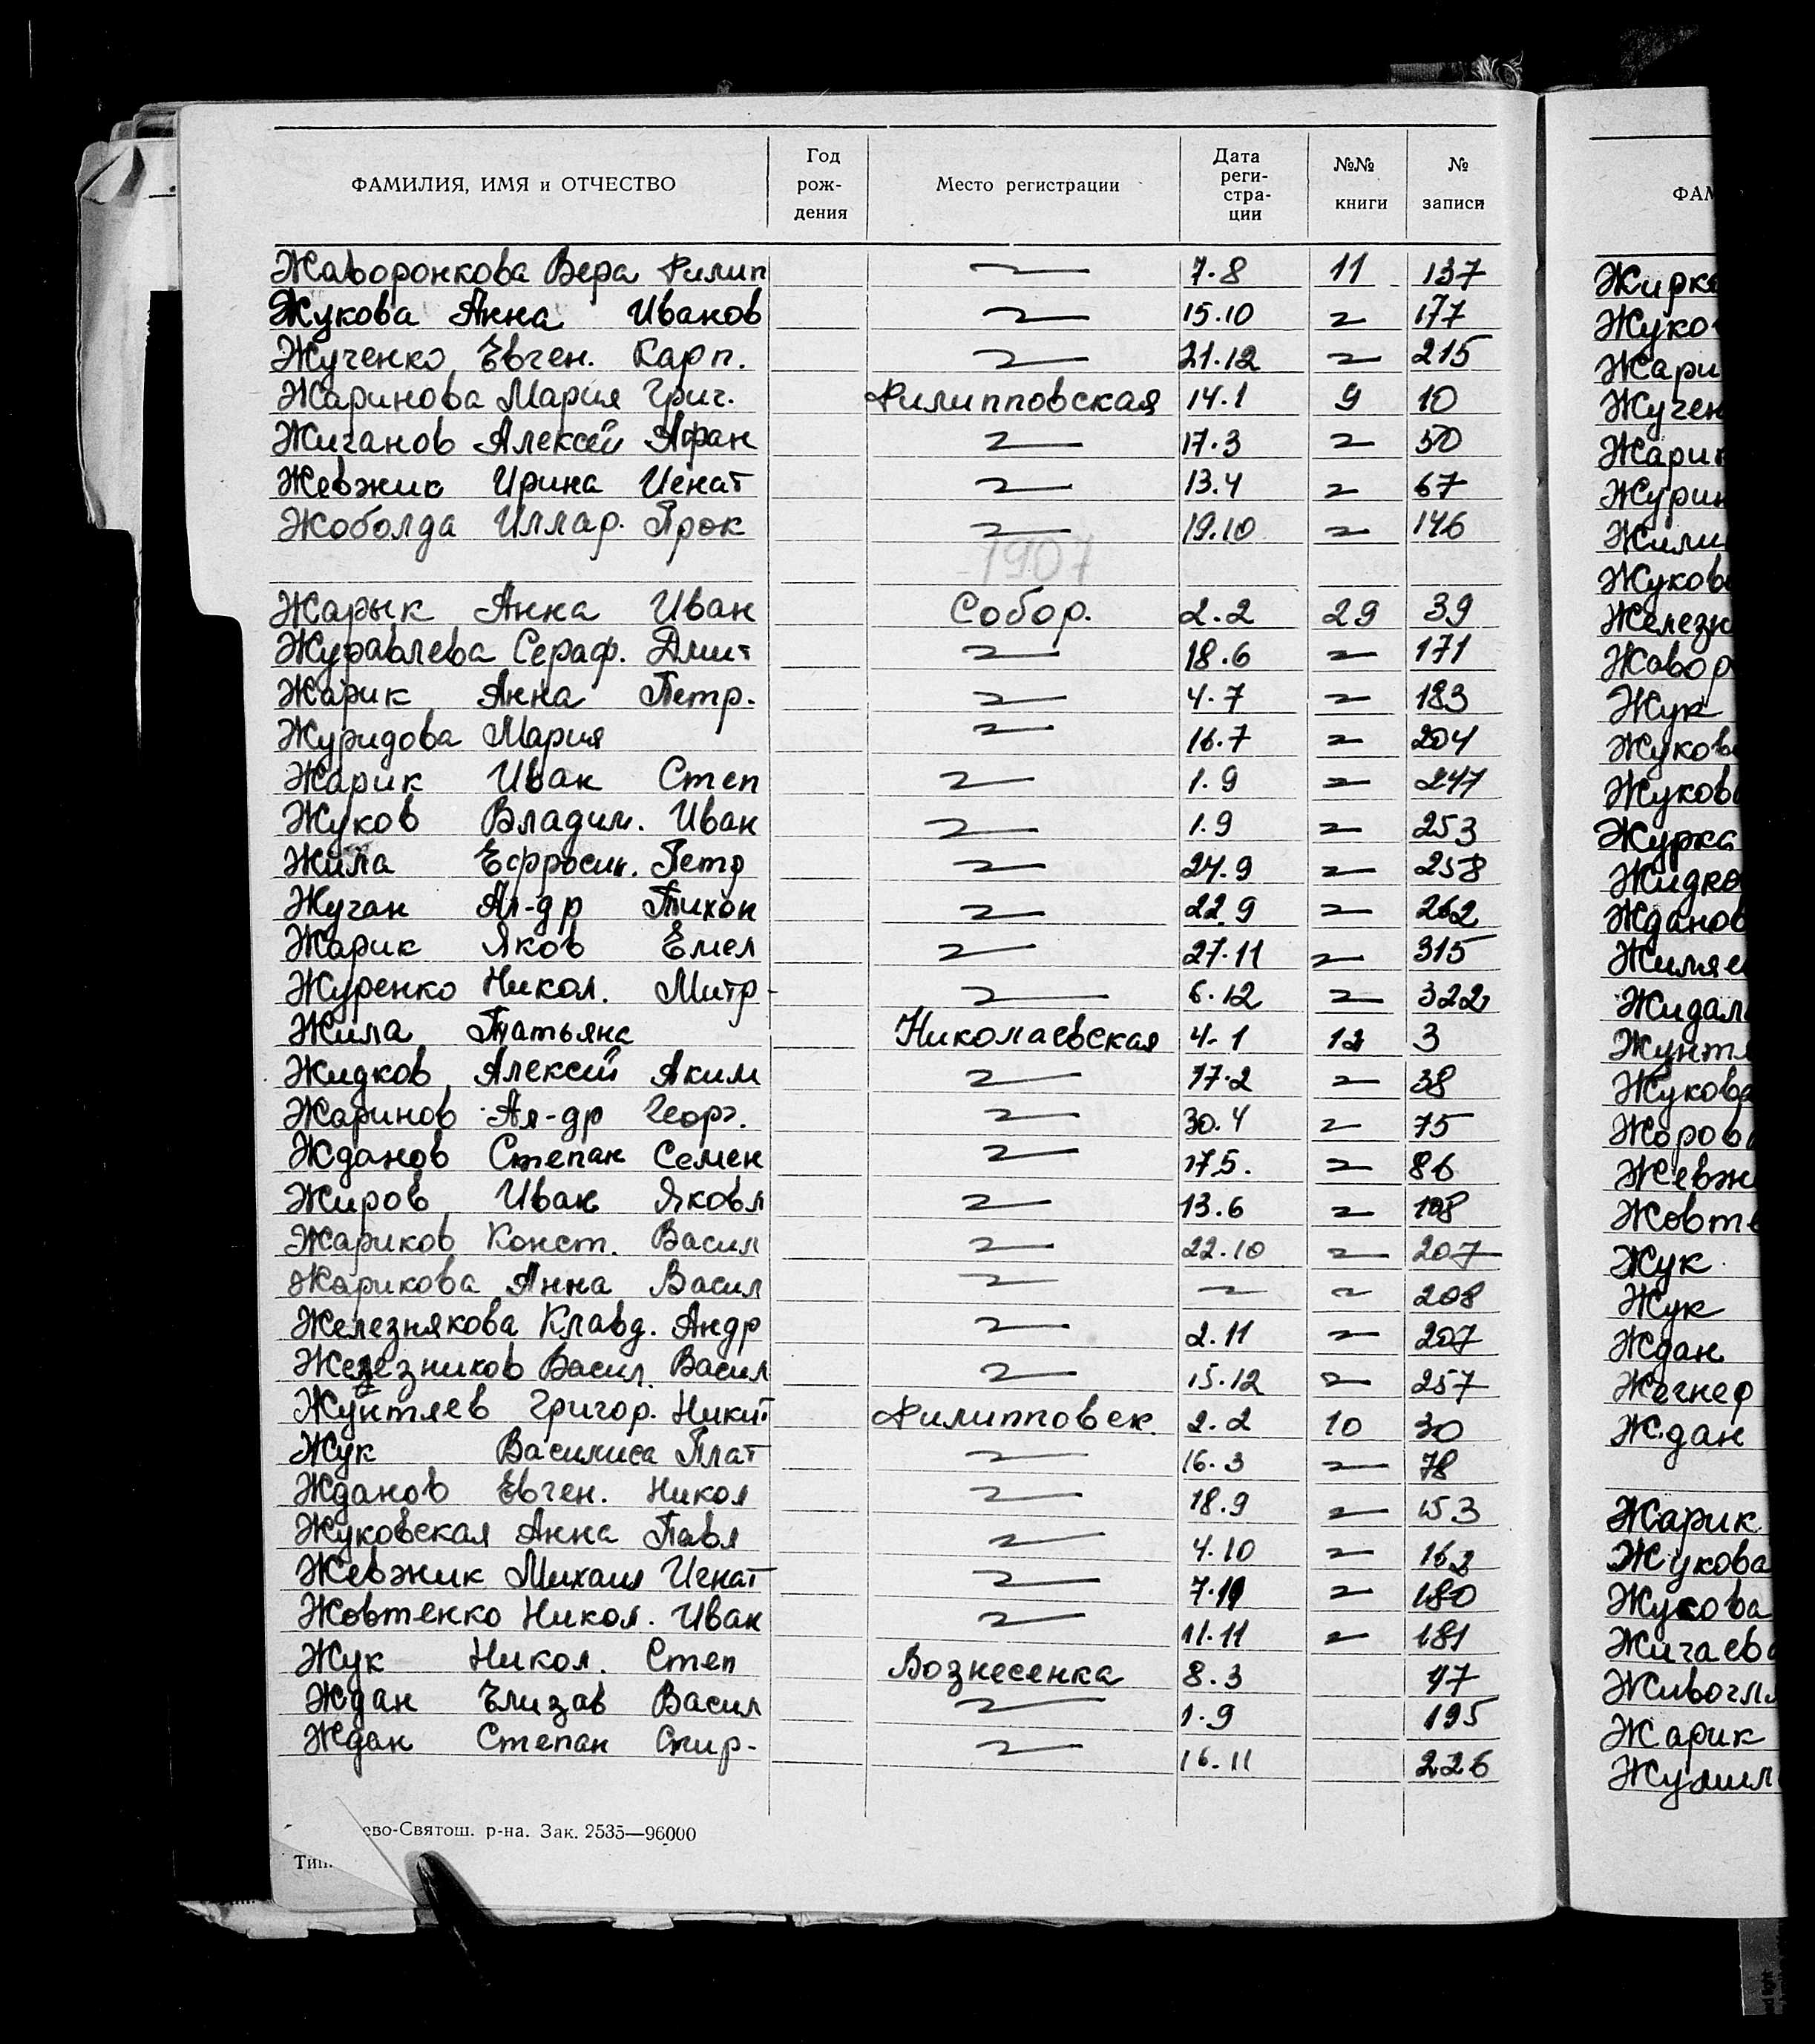 ФАМИЛИЯ, ИМЯ и ОТЧЕСТВО Год рож-дения Место регистрации Дата реги-стра-ции №№ книги № записи
Жаворонкова Вера Филип 〃 7.8 11 137
Жукова Анна Иванов 〃 15.10 〃 177
Жученко Евген. Карп. 〃 21.12 〃 215
Жаринова Мария Григ. Филипповская 14.1 9 10
Жиганов Алексей Афан 〃 17.3 〃 50
Жевжик Ирина Игнат 〃 13.4 〃 67
Жоболда Иллар. Прок 〃 19.10 〃 146
1907
Жарык Анна Иван Собор. 2.2 29 39
Журавлева Сераф. Дмит 〃 18.6 〃 171
Жарик Анна Петр. 〃 4.7 〃 183
Журидова Мария 〃 16.7 〃 204
Жарик Иван Степ 〃 1.9 〃 247
Жуков Владим. Иван 〃 1.9 〃 253
Жила Ефросин. Петр 〃 24.9 〃 258
Жуган Ал-др Тихон 〃 22.9 〃 262
Жарик Яков Емел 〃 27.11 〃 315
Журенко Никол. Митр. 〃 6.12 〃 322
Жила Татьяна Николаевская 4.1 12 3
Жидков Алексей Аким 〃 17.2 〃 38
Жаринов Ал-др Георг. 〃 30.4 〃 75
Жданов Степан Семен 〃 17.5. 〃 86
Жиров Иван Яковл 〃 13.6 〃 108
Жариков Конст. Васил 〃 22.10 〃 207
Жарикова Анна Васил 〃 〃 〃 208
Железнякова Клавд. Андр 〃 2.11 〃 207
Железников Васил. Васил 〃 15.12 〃 257
Жунтяев Григор. Никит Филипповск. 2.2 10 30
Жук Василиса Плат 〃 16.3 〃 78
Жданов Евген. Никол 〃 18.9 〃 153
Жуковская Анна Павл 〃 4.10 〃 162
Жевжик Михаил Игнат 〃 7.11 〃 180
Жовтенко Никол. Иван 〃 11.11 〃 181
Жук Никол. Степ Вознесенка 8.3 47
Ждан Елизав Васил 〃 1.9 195
Ждан Степан Спир. 〃 16.11 226
ево-Святош. р-на. Зак. 2535—96000
Тип.
ФАМ
Жирк
Жуко
Жари
Жучен
Жари
Журин
Жили
Жуков
Железн
Жавор
Жук
Жуков
Жуков
Журка
Жидко
Жданов
Жиляе
Жидал
Жунт
Жукова
Жоров
Жевж
Жовте
Жук
Жук
Ждан
Жегнер
Ждан
Жарик
Жукова
Жукова
Жигаев
Живогл
Жарик